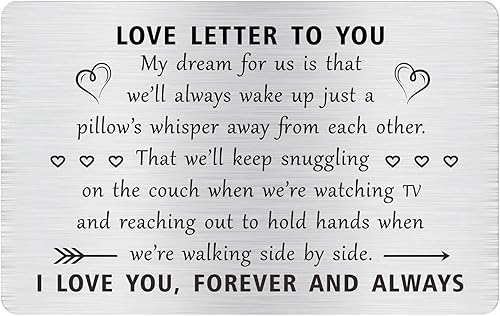 LOVE LETTER TO YOU
My dream for us is that
we'll always wake up just a
pillow's whisper away from each other.
That we'll keep snuggling
on the couch when we're watching TV
and reaching out to hold hands when
we're walking side by side.
I LOVE YOU, FOREVER AND ALWAYS